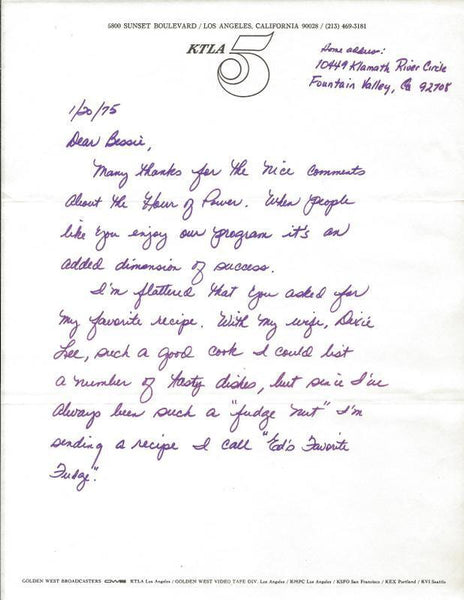 5800 SUNSET BOULEVARD / LOS ANGELES, CALIFORNIA 90028 / (213) 469-3181
KTLA 5
Home address:
10449 Klamath River Circle
Fountain Valley, Ca 92708
1/20/75
Dear Bessie,
Many thanks for the nice comments
about the Hour of Power. When people
like you enjoy our program it's an
added dimension of success.
I'm flattered that you asked for
my favorite recipe. With my wife, Dixie
Lee, such a good cook I could list
a number of tasty dishes, but since I've
always been such a "fudge nut" I'm
sending a recipe I call "Ed's Favorite
Fudge".
GOLDEN WEST BROADCASTERS GWB KTLA Los Angeles / GOLDEN WEST VIDEO TAPE DIV. Los Angeles / KMPC Los Angeles / KSFO San Francisco / KEX Portland / KVI Seattle